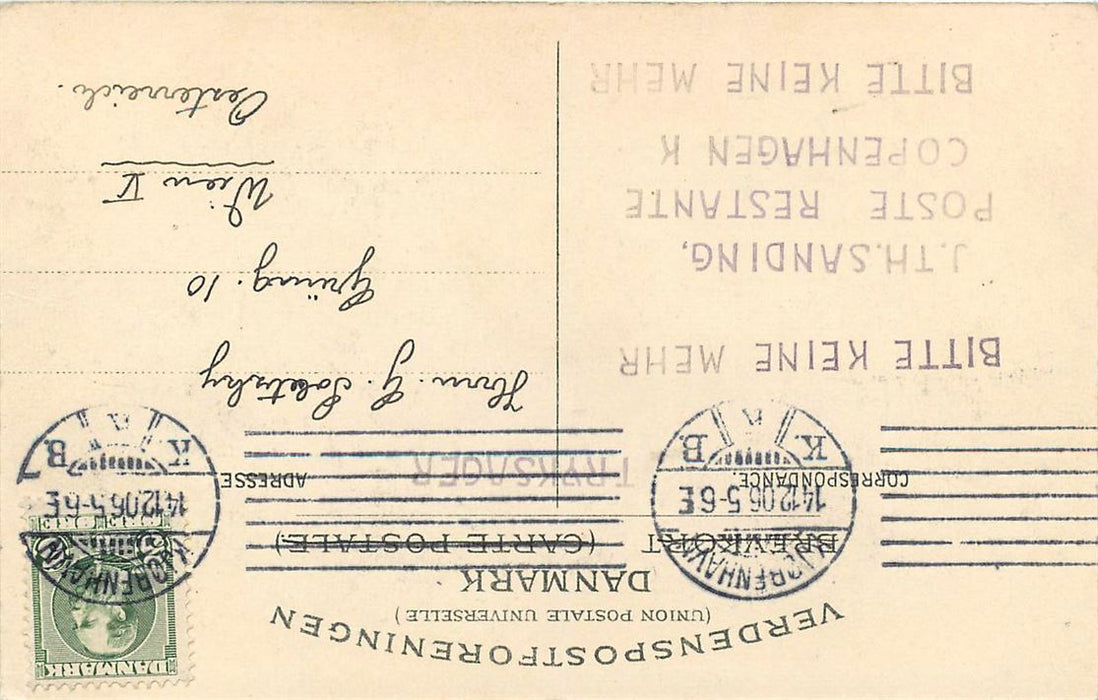 VERDENSPOSTFORENINGEN
(UNION POSTALE UNIVERSELLE)
DANMARK
BREVKORT (CARTE POSTALE)
CORRESPONDANCE
ADRESSE
TRYKSAGER
KJØBENHAVN
14.12.06.5-6E
K. B.
KJØBENHAVN
14.12.06.5-6E
K. B.
DANMARK
BITTE KEINE MEHR
J.TH.SANDING,
POSTE RESTANTE
COPENHAGEN K
BITTE KEINE MEHR
Herrn G.
Grüng. 10
Wien V
Oesterreich.